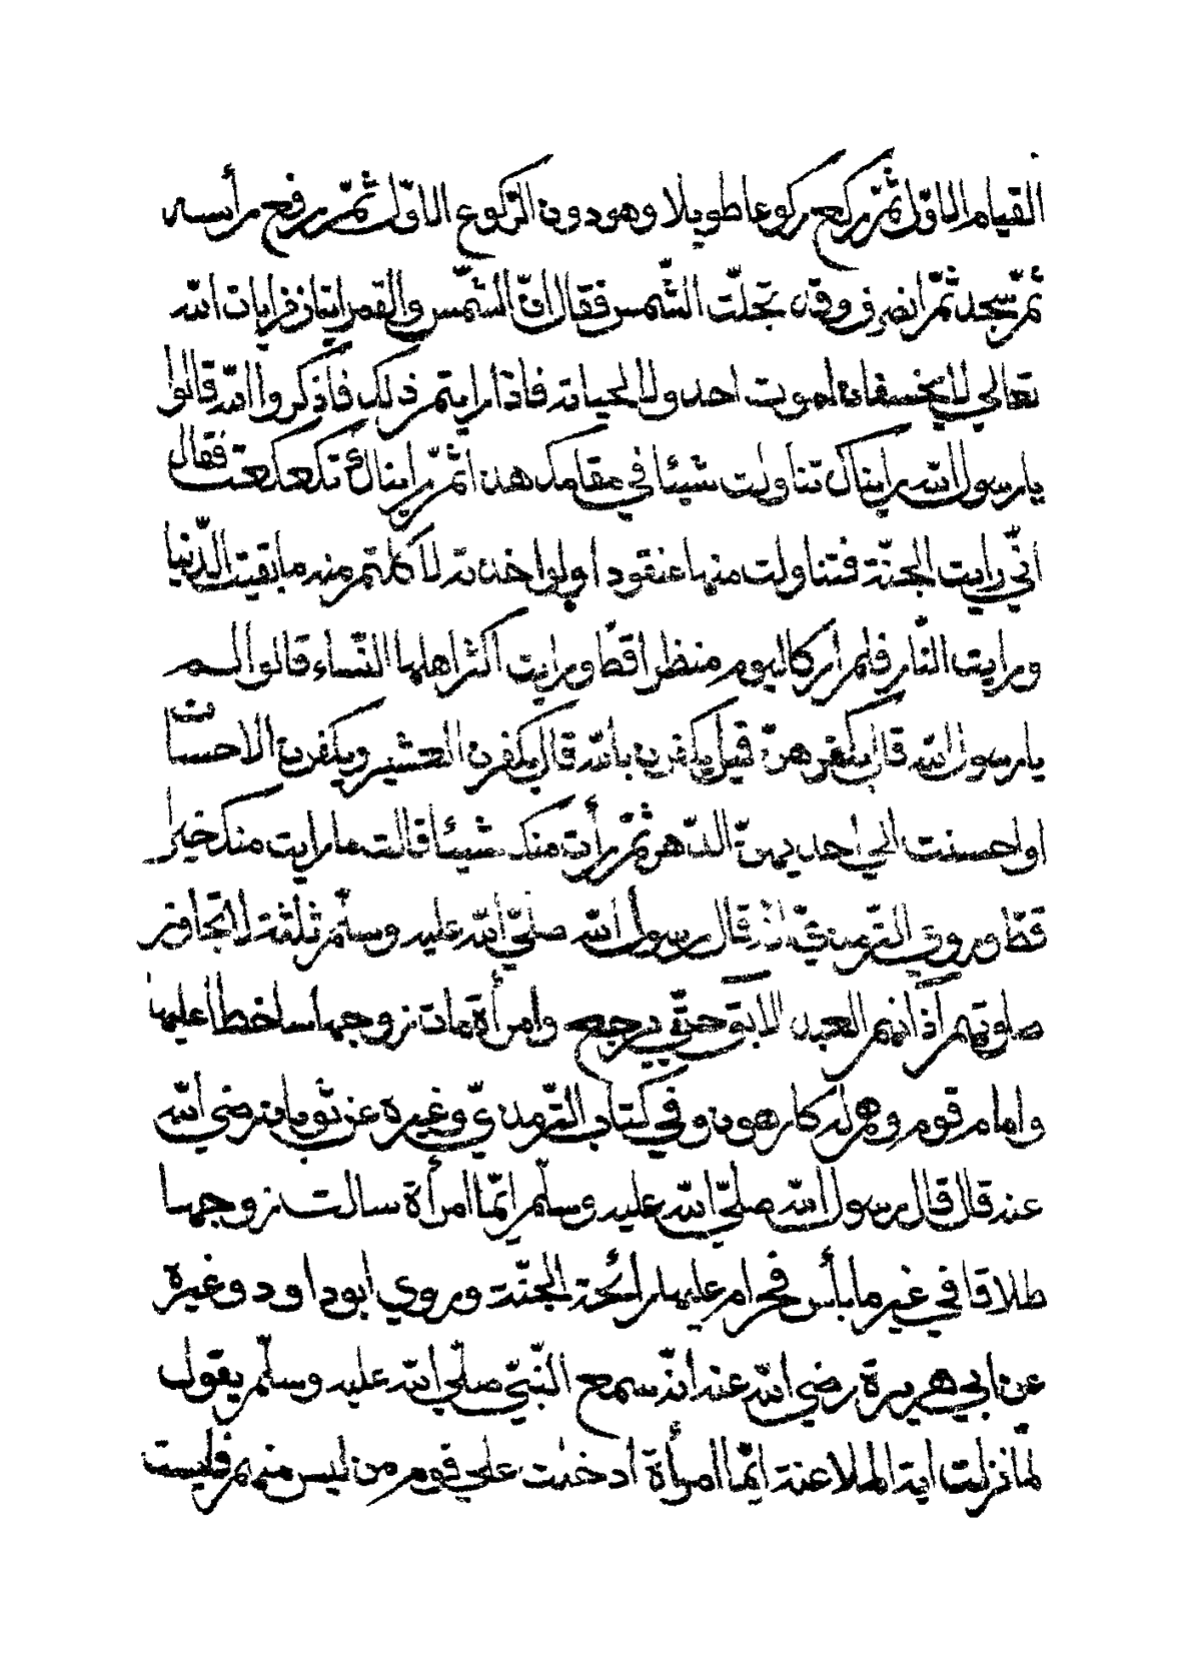 القيام الاوّل ثمّ ركع ركوعا طويلا وهو دون الرّكوع الاوّل ثمّ رفع رأسه
ثمّ سجد ثمّ انصرف وقد تجلّت الشّمس فقال انّ الشّمس والقمر ايتان من ايات الله
تعالي لا يخسفان لموت احد ولا لحياته فاذا رايتم ذلك فاذكروا الله قالوا
يا رسول الله رايناك تناولت شيئا في مقامك هذا ثمّ رايناك تكعكعت فقال
انّي رايت الجنّة فتناولت منها عنقودا ولو اخذته لاكلتم منه ما بقيت الدّنيا
ورايت النّار فلم ار كاليوم منظرا قطّ ورايت اكثر اهلها النّساء قالوا لم
يا رسول الله قال بكفرهنّ قيل يكفرن بالله قال يكفرن العشير ويكفرن الاحسان
لو احسنت الي احديهنّ الدّهر ثمّ رأت منك شيئا قالت ما رايت منك خيرا
قطّ وروي التّرمذيّ انّه قال رسول الله صلّي الله عليه وسلّم ثلثة لا تجاوز
صلوتهم آذانهم العبد الابق حتّي يرجع وامرأة بات زوجها ساخطا عليها
وامام قوم وهم له كارهون وفي كتاب التّرمذيّ وغيره عن ثوبان رضي الله
عنه قال قال رسول الله صلّي الله عليه وسلّم ايّما امرأة سالت زوجها
طلاقا في غير ما بأس فحرام عليها رائحة الجنّة وروي ابو داود وغيره
عن ابي هريرة رضي الله عنه انّه سمع النّبيّ صلّي الله عليه وسلّم يقول
لمّا نزلت اية الملاعنة ايّما امرأة ادخلت علي قوم من ليس منهم فليست